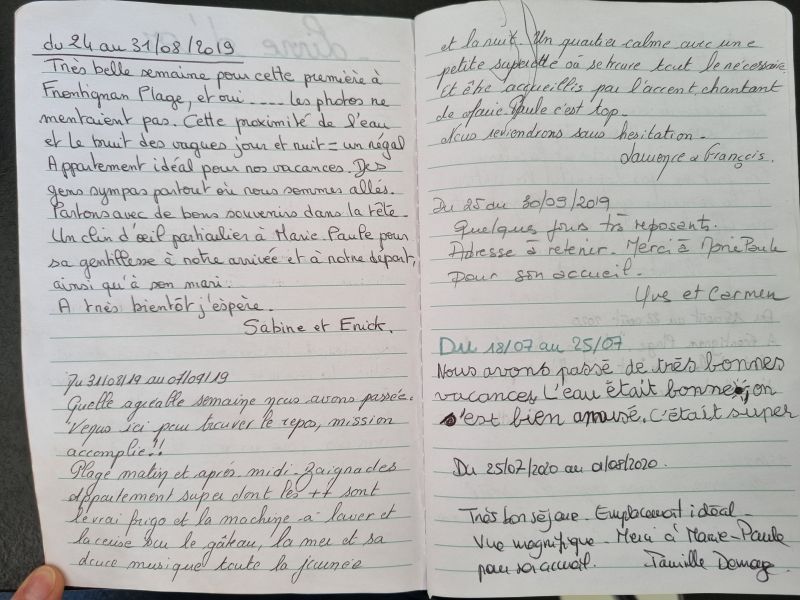 du 24 au 31/08/2019
Très belle semaine pour cette première à
Frontignan Plage, et oui .... les photos ne
mentaient pas. Cette proximité de l'eau
et le bruit des vagues jour et nuit = un régal
Appartement idéal pour nos vacances. Des
gens sympas partout où nous sommes allés.
Partons avec de bons souvenirs dans la tête.
Un clin d'œil particulier à Marie-Paule pour
sa gentillesse à notre arrivée et à notre départ,
ainsi qu'à son mari.
A très bientôt j'espère.
Sabine et Erick.
Du 31/08/19 au 07/09/19
Quelle agréable semaine nous avons passée.
Venus ici pour trouver le repos, mission
accomplie!!
Plage matin et après-midi. Baignades
Appartement super dont les ++ sont
le vrai frigo et la machine à laver et
la cerise sur le gâteau, la mer et sa
douce musique toute la journée
et la nuit. Un quartier calme avec une
petite supérette où se trouve tout le nécessaire
Et être accueillis par l'accent chantant
de Marie-Paule c'est top.
Nous reviendrons sans hésitation.
Laurence & François.
Du 25 au 30/09/2019
Quelques jours très reposants.
Adresse à retenir. Merci à Marie Paule
pour son accueil.
Yve et Carmen
Du 18/07 au 25/07
Nous avons passé de très bonnes
vacances, L'eau était bonne, on
s'est bien amusé, C'était super
Du 25/07/2020 au 01/08/2020.
Très bon séjour. Emplacement idéal.
Vue magnifique. Merci à Marie-Paule
pour son accueil. Famille